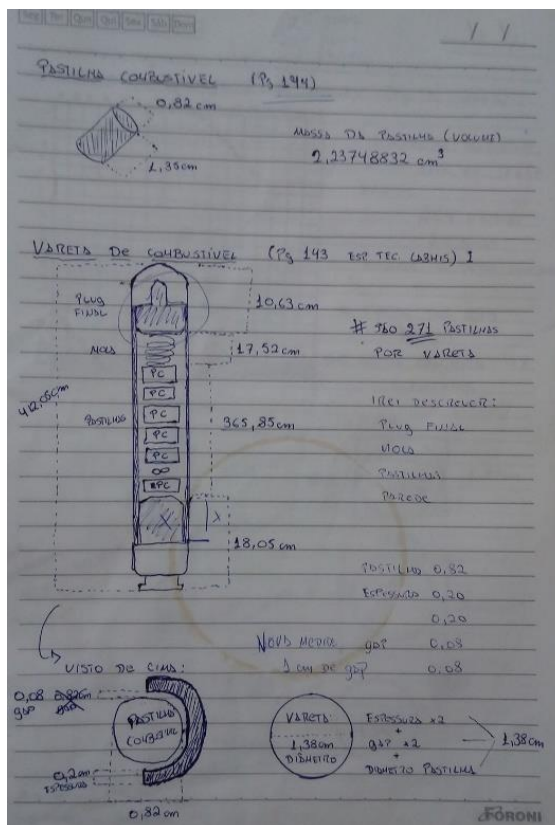 Seg Ter Qua Qui Sex Sáb Dom
/ /
PASTILHA COMBUSTÍVEL (Pg 144)
0,82 cm
1,35cm
MASSA DA PASTILHA (VOLUME)
2,23748832 cm³
VARETA DE COMBUSTÍVEL (Pg 143 ESP. TEC. LABMIS) I
PLUG
FINAL
10,63 cm
# SÃO 271 PASTILHAS
POR VARETA
MOLA
17,52cm
PC
PC
412,05cm
PASTILHAS
PC
365,85cm
PC
PC
∞
PC
IREI DESCREVER:
PLUG FINAL
MOLA
PASTILHAS
PAREDE
X
18,05 cm
PASTILHA 0,82
ESPESSURA 0,20
0,20
NOVA MEDIDA gap 0,08
1 cm DE gap 0,08
VISTO DE CIMA:
0,08
gap
PASTILHA
COMBUSTÍVEL
0,2cm
ESPESSURA
0,82 cm
VARETA
1,38cm
DIÂMETRO
ESPESSURA x2
+
gap x2
+
DIÂMETRO PASTILHA
1,38cm
FORONI